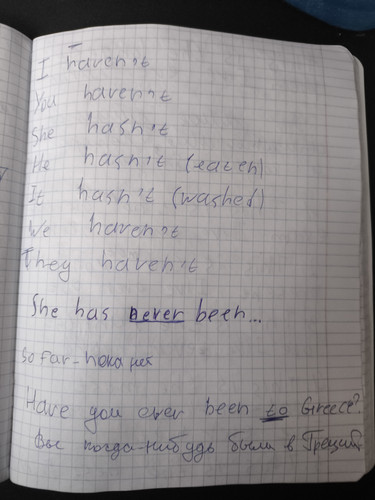 I haven't
You haven't
She hasn't
He hasn't (eaten)
It hasn't (washed)
We haven't
They haven't
She has never been...
So far - пока нет
Have you ever been to Greece?
Вы когда-нибудь были в Греции